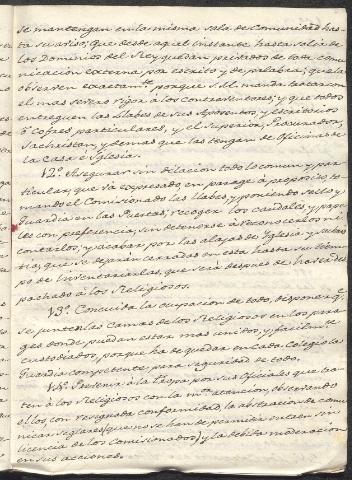 se mantengan en la misma sala de Comunidad has-
ta su aviso; que desde aquel instante hasta salir de
los Dominios del Rey quedan privados de toda comu-
nicacion externa por escrito y de palabra; que la
observen exactamte. porque S.M. manda tratar con
el mas severo rigor à los Contraventores; y que todos
entreguen las llabes de sus Aposentos, y escritorios
ò Cofres particulares, y el Superior, Procurador,
Sachristan, y demas que las tengan de Oficinas de
la Casa è Iglesia.
12.º Asegurar sin dilacion todo lo comun y par-
ticular, que và expresado, en parage à proposito to-
mando el Comisionado las llabes, y poniendo Sello y
Guardia en las Puertas; recoger los caudales, y pape-
les con preferencia, sin detenerse à reconocerlos ni
contarlos; y acabar por las alajas de Iglesia y Sachris-
tia, que se dejaràn cerradas en esta hasta su tiem-
po de Inventariarlas, que serà despues de haver des-
pachado à los Religiosos.
13.º Concluida la ocupacion de todo, disponer qe.
se junten las Camas de los Religiosos en los para-
ges donde puedan estar mas unidos, y facilmte.
custodiados, porque ha de quedar en cada Colegio la
Guardia competente para seguridad de todo.
14.º Prevenir à la Tropa por sus Oficiales que tra-
ten à los Religiosos con la mor. atencion, observando
ellos con resignada conformidad, la abstraccion de comu-
nicar seglares (que no se han de permitir entren sin
licencia de los Comisionados) y la debida moderacion
en sus acciones.